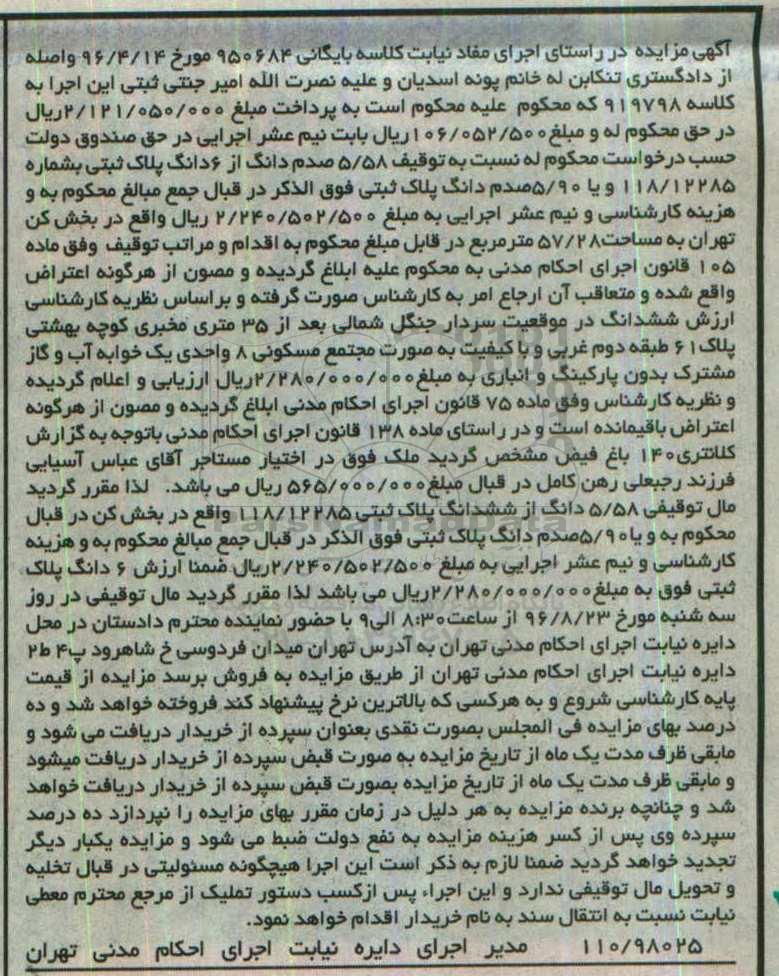 آگهی مزایده در راستای اجرای مفاد نیابت کلاسه بایگانی ۹۵۰۶۸۴ مورخ ۹۶/۴/۱۴ واصله
از دادگستری تنکابن له خانم پونه اسدیان و علیه نصرت الله امیر جنتی ثبتی این اجرا به
کلاسه ۹۱۹۷۹۸ که محکوم علیه محکوم است به پرداخت مبلغ ۲/۱۲۱/۰۵۰/۰۰۰ریال
در حق محکوم له و مبلغ۱۰۶/۰۵۲/۵۰۰ریال بابت نیم عشر اجرایی در حق صندوق دولت
حسب درخواست محکوم له نسبت به توقیف ۵/۵۸ صدم دانگ از ۶دانگ پلاک ثبتی بشماره
۱۱۸/۱۲۲۸۵ و یا ۵/۹۰صدم دانگ پلاک ثبتی فوق الذکر در قبال جمع مبالغ محکوم به و
هزینه کارشناسی و نیم عشر اجرایی به مبلغ ۲/۲۴۰/۵۰۲/۵۰۰ ریال واقع در بخش کن
تهران به مساحت۵۷/۲۸ مترمربع در قابل مبلغ محکوم به اقدام و مراتب توقیف وفق ماده
۱۰۵ قانون اجرای احکام مدنی به محکوم علیه ابلاغ گردیده و مصون از هرگونه اعتراض
واقع شده و متعاقب آن ارجاع امر به کارشناس صورت گرفته و براساس نظریه کارشناسی
ارزش ششدانگ در موقعیت سردار جنگل شمالی بعد از ۳۵ متری مخبری کوچه بهشتی
پلاک۶۱ طبقه دوم غربی و با کیفیت به صورت مجتمع مسکونی ۸ واحدی یک خوابه آب و گاز
مشترک بدون پارکینگ و انباری به مبلغ۲/۲۸۰/۰۰۰/۰۰۰ریال ارزیابی و اعلام گردیده
و نظریه کارشناس وفق ماده ۷۵ قانون اجرای احکام مدنی ابلاغ گردیده و مصون از هرگونه
اعتراض باقیمانده است و در راستای ماده ۱۳۸ قانون اجرای احکام مدنی باتوجه به گزارش
کلانتری۱۴۰ باغ فیض مشخص گردید ملک فوق در اختیار مستاجر آقای عباس آسیایی
فرزند رجبعلی رهن کامل در قبال مبلغ۵۶۵/۰۰۰/۰۰۰ ریال می باشد. لذا مقرر گردید
مال توقیفی ۵/۵۸ دانگ از ششدانگ پلاک ثبتی ۱۱۸/۱۲۲۸۵ واقع در بخش کن در قبال
محکوم به و یا۵/۹۰صدم دانگ پلاک ثبتی فوق الذکر در قبال جمع مبالغ محکوم به و هزینه
کارشناسی و نیم عشر اجرایی به مبلغ ۲/۲۴۰/۵۰۲/۵۰۰ریال ضمنا ارزش ۶ دانگ پلاک
ثبتی فوق به مبلغ۲/۲۸۰/۰۰۰/۰۰۰ریال می باشد لذا مقرر گردید مال توقیفی در روز
سه شنبه مورخ ۹۶/۸/۲۳ از ساعت۸:۳۰ الی۹ با حضور نماینده محترم دادستان در محل
دایره نیابت اجرای احکام مدنی تهران به آدرس تهران میدان فردوسی خ شاهرود پ۴ ط۲
دایره نیابت اجرای احکام مدنی تهران از طریق مزایده به فروش برسد مزایده از قیمت
پایه کارشناسی شروع و به هرکسی که بالاترین نرخ پیشنهاد کند فروخته خواهد شد و ده
درصد بهای مزایده فی المجلس بصورت نقدی بعنوان سپرده از خریدار دریافت می شود و
مابقی ظرف مدت یک ماه از تاریخ مزایده به صورت قبض سپرده از خریدار دریافت میشود
و مابقی ظرف مدت یک ماه از تاریخ مزایده بصورت قبض سپرده از خریدار دریافت خواهد
شد و چنانچه برنده مزایده به هر دلیل در زمان مقرر بهای مزایده را نپردازد ده درصد
سپرده وی پس از کسر هزینه مزایده به نفع دولت ضبط می شود و مزایده یکبار دیگر
تجدید خواهد گردید ضمنا لازم به ذکر است این اجرا هیچگونه مسئولیتی در قبال تخلیه
و تحویل مال توقیفی ندارد و این اجراء پس ازکسب دستور تملیک از مرجع محترم معطی
نیابت نسبت به انتقال سند به نام خریدار اقدام خواهد نمود.
۱۱۰/۹۸۰۲۵ مدیر اجرای دایره نیابت اجرای احکام مدنی تهران
ParsNamadData